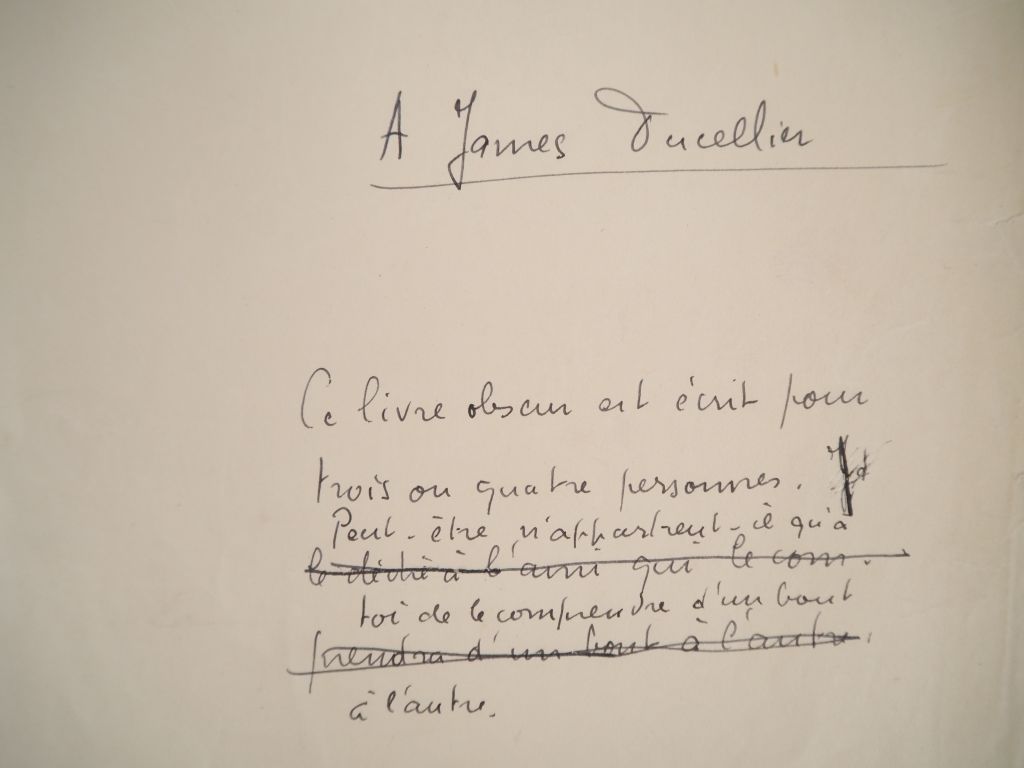 A James Ducellier
Ce livre obscur est écrit pour
trois ou quatre personnes.
Peut-être n'appartient-il qu'à
le dédie à l'ami qui le com-
toi de le comprendre d'un bout
prendra d'un bout à l'autre.
à l'autre.